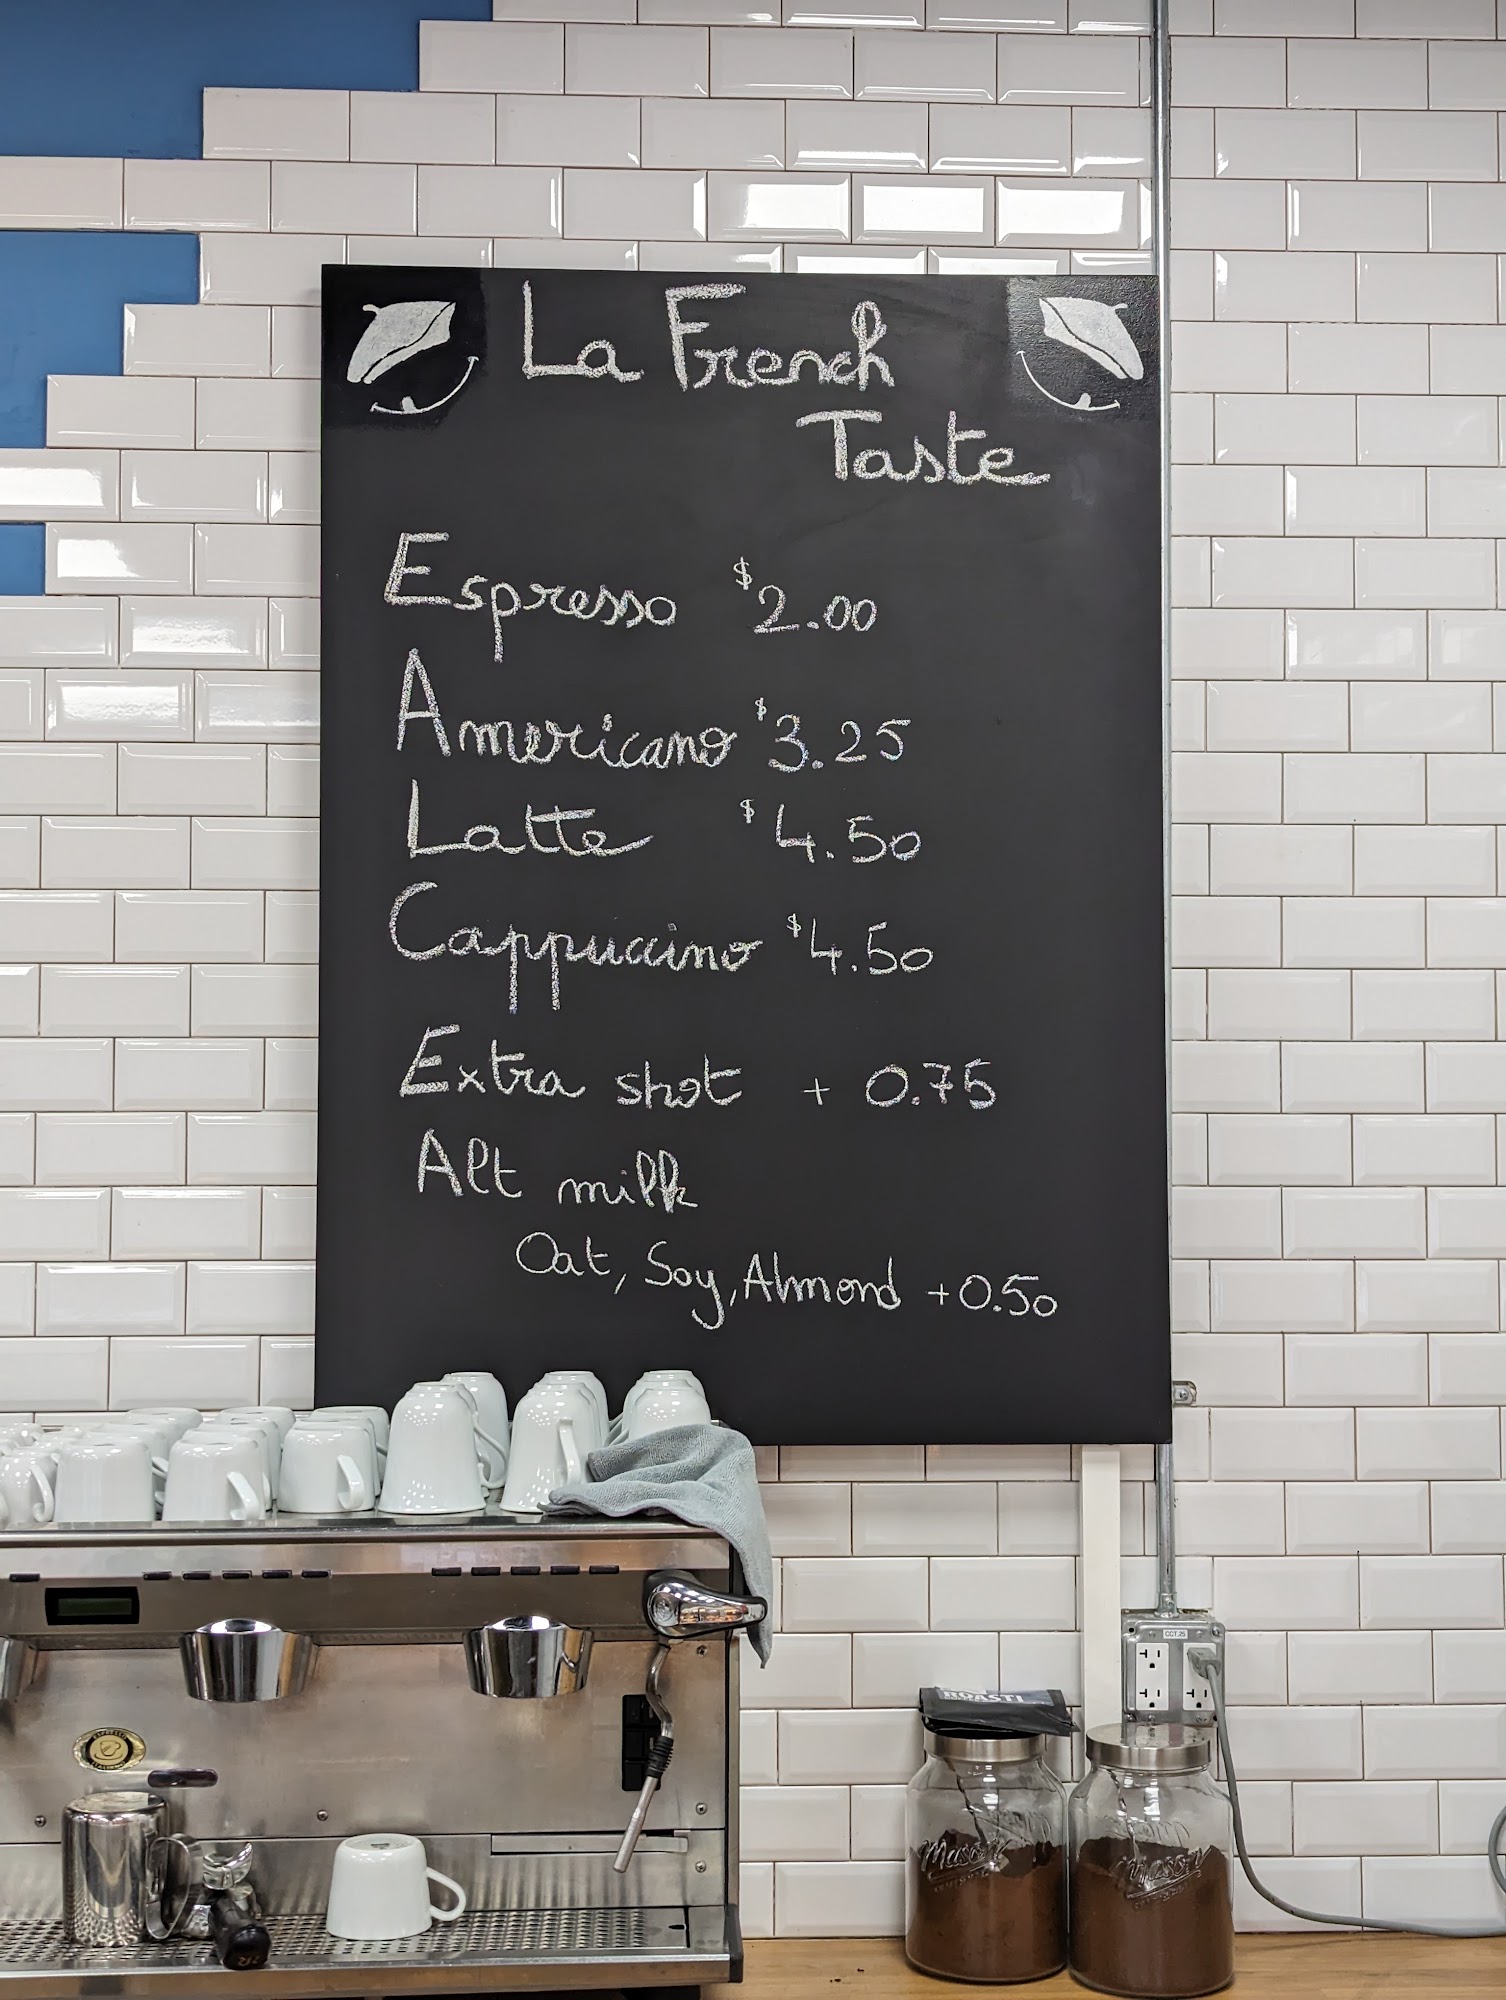 La French
Taste
Espresso $2.00
Americano $3.25
Latte $4.50
Cappuccino $4.50
Extra shot + 0.75
Alt milk
Oat, Soy, Almond +0.50
CCT.25
Mason
Mason